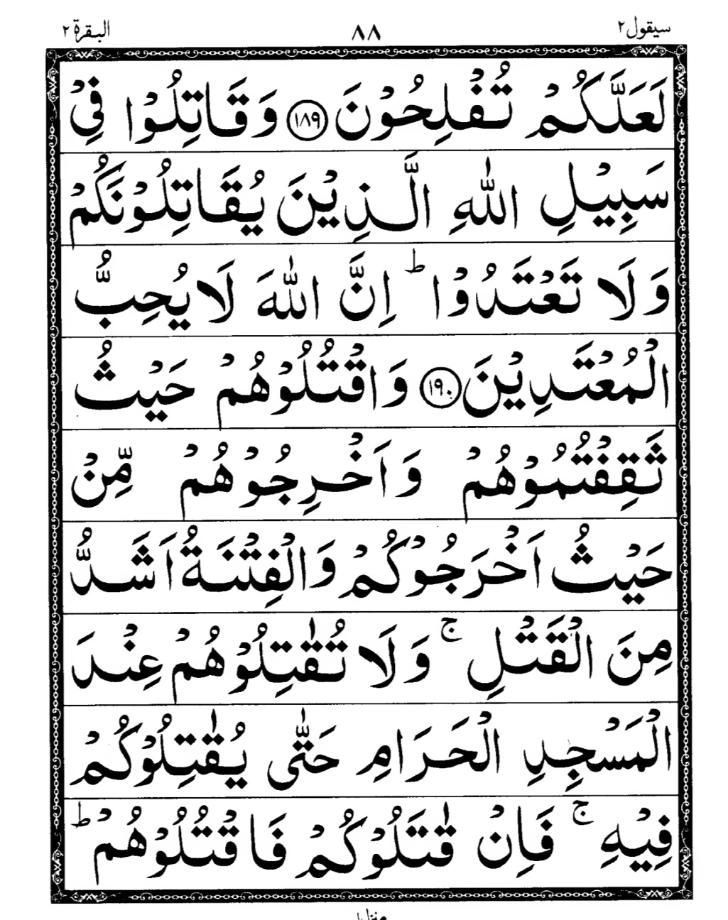 سيقول ٢ ٨٨ البقرة ٢
لَعَلَّكُمْ تُفْلِحُوْنَ ﴿١٨٩﴾ وَقَاتِلُوْا فِيْ
سَبِيْلِ اللّٰهِ الَّذِيْنَ يُقَاتِلُوْنَكُمْ
وَلَا تَعْتَدُوْا ؕ اِنَّ اللّٰهَ لَا يُحِبُّ
الْمُعْتَدِيْنَ ﴿١٩٠﴾ وَاقْتُلُوْهُمْ حَيْثُ
ثَقِفْتُمُوْهُمْ وَاَخْرِجُوْهُمْ مِّنْ
حَيْثُ اَخْرَجُوْكُمْ وَالْفِتْنَةُ اَشَدُّ
مِنَ الْقَتْلِ ۚ وَلَا تُقٰتِلُوْهُمْ عِنْدَ
الْمَسْجِدِ الْحَرَامِ حَتّٰى يُقٰتِلُوْكُمْ
فِيْهِ ۚ فَاِنْ قٰتَلُوْكُمْ فَاقْتُلُوْهُمْ ؕ